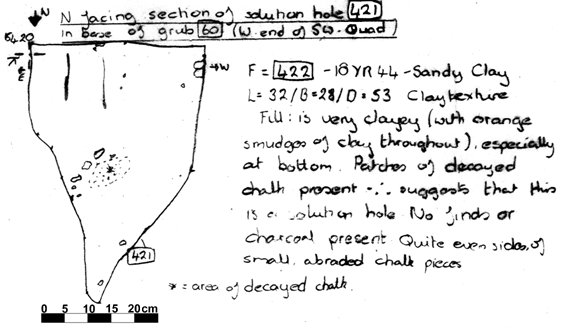 N facing section of solution hole 421
in base of grub 60 (W. end of SW. Quad)
N
W
E
F = 422 - 18 YR 44 - Sandy Clay
L = 32 / B = 28 / D = 53 Clay texture
Fill: is very clayey (with orange
smudges of clay throughout), especially
at bottom. Patches of decayed
chalk present ∴ suggests that this
is a solution hole. No finds or
charcoal present Quite even sides, of
small, abraded chalk pieces
421
* = area of decayed chalk.
0 5 10 15 20cm